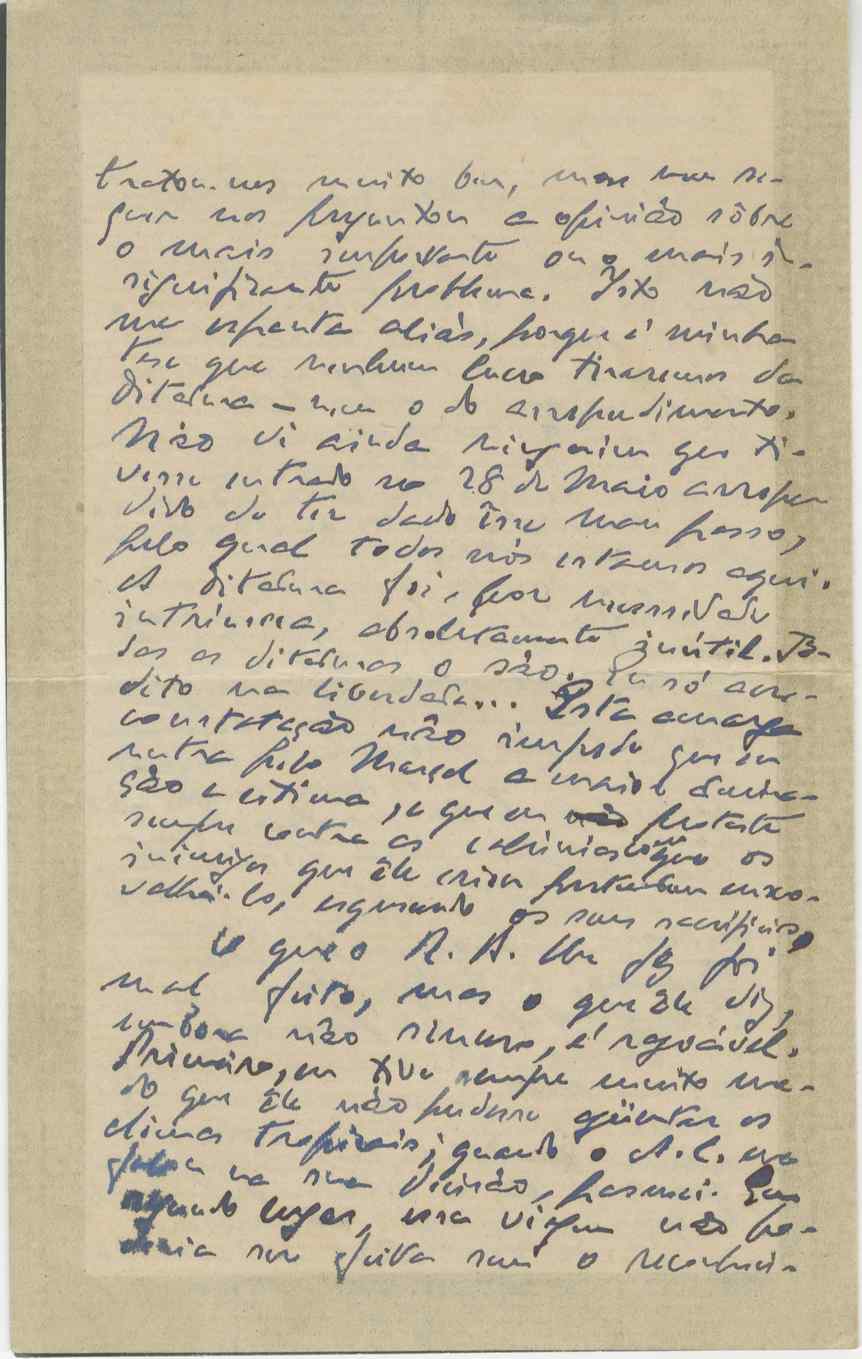 tratou-nos muito bem, mas nem se-
quer nos preguntou a opinião sôbre
o mais importante ou o mais in-
significante problema. Isto não
me espanta aliás, porque é minha
tese que nenhum lucro tiraremos da
Ditadura — nem o do arrependimento.
Não vi ainda ninguém que ti-
vesse entrado no 28 de Maio arrepen
dido de ter dado êsse mau passo,
pelo qual todos nós estamos aqui.
A ditadura foi, por necessidade
intrínseca, absolutamente inútil. To-
das as ditaduras o são. Eu só acre-
dito na liberdade... Esta amarga
constatação não impede que eu
nutra pelo Marçal a maior admira-
ção e estima, e que eu proteste
sempre contra as calúnias com que os
inimigos que êle criou pretendem enxo-
valhá-lo, esquecendo os seus sacrifícios.
O que o R. A. lhe fez foi
mal feito, mas o que êle diz,
embora não sincero, é razoável.
Primeiro, eu tive sempre muito me-
do que êle não pudesse agüentar os
climas tropicais; quando o A. C. me
falou na sua decisão, pasmei. Em
segundo lugar, essa viagem não po-
deria ser feita sem o reconheci-